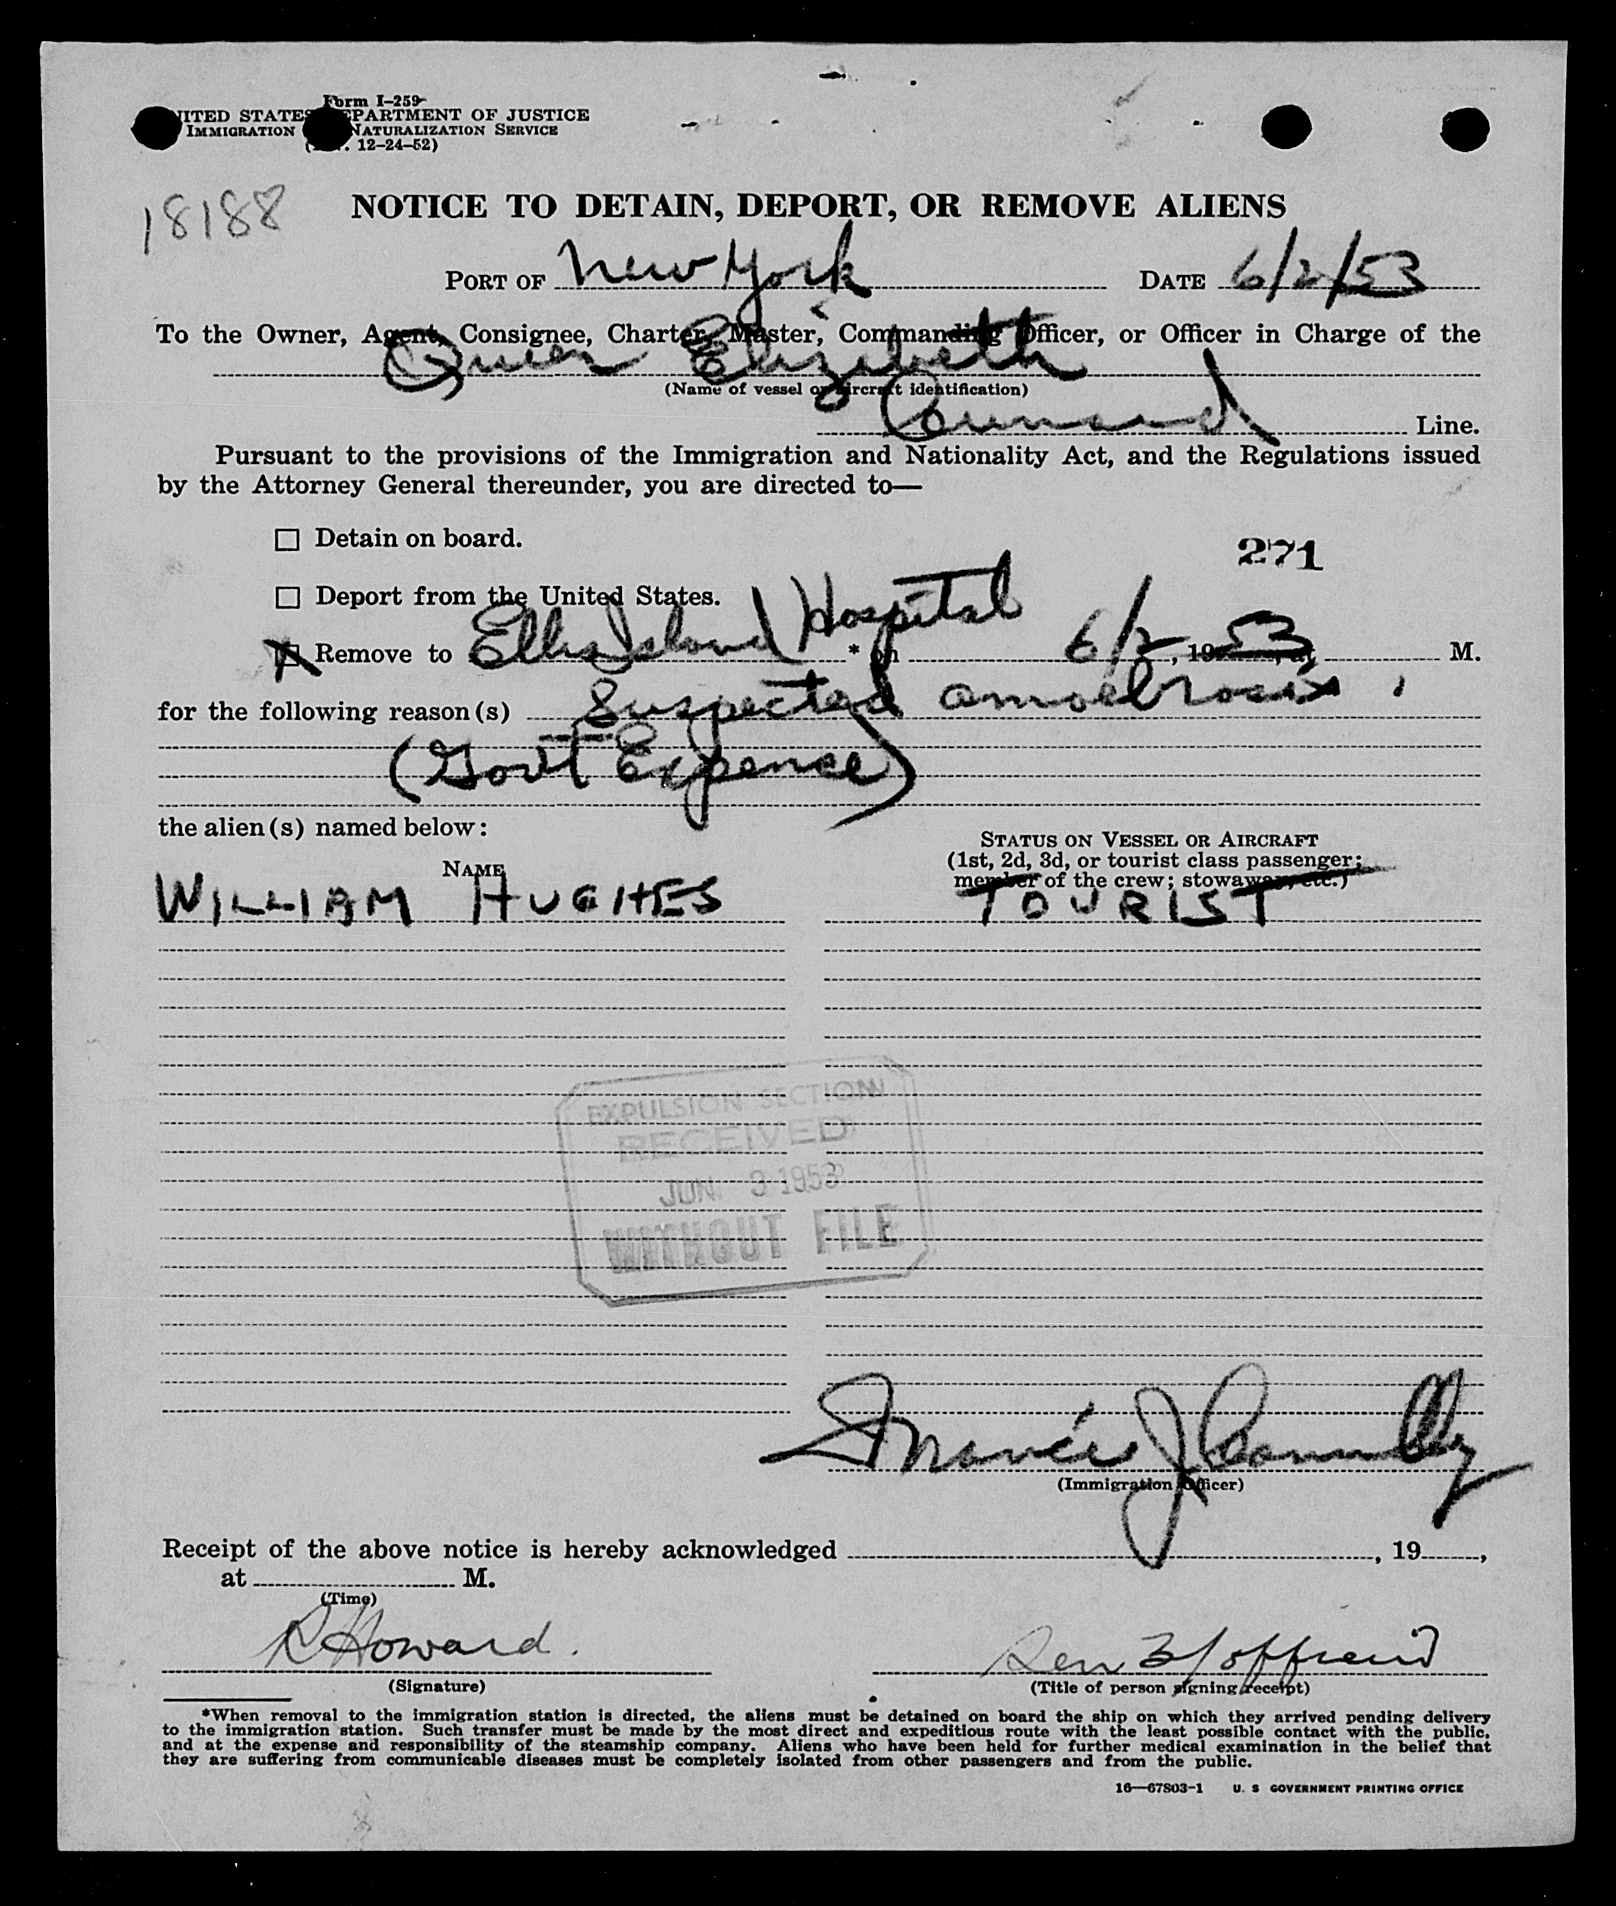 Form I-259
UNITED STATES DEPARTMENT OF JUSTICE
IMMIGRATION NATURALIZATION SERVICE
12-24-52)
18188
NOTICE TO DETAIN, DEPORT, OR REMOVE ALIENS
PORT OF New York DATE 6/2/53
To the Owner, Agent, Consignee, Charter, Master, Commanding Officer, or Officer in Charge of the
Queen Elizabeth
(Name of vessel or aircraft identification)
Cunard Line.
Pursuant to the provisions of the Immigration and Nationality Act, and the Regulations issued
by the Attorney General thereunder, you are directed to—
☐ Detain on board.
271
☐ Deport from the United States.
☒ Remove to Ellis Island Hospital * on 6/2, 1953, at M.
for the following reason(s) Suspected amoebrosis
(Govt Expence)
the alien(s) named below:
STATUS ON VESSEL OR AIRCRAFT
(1st, 2d, 3d, or tourist class passenger;
member of the crew; stowaway, etc.)
NAME
WILLIAM HUGHES TOURIST
EXPULSION SECTION
RECEIVED
JUN 3 1953
WITHOUT FILE
Francis J Connolly
(Immigration Officer)
Receipt of the above notice is hereby acknowledged , 19 ,
at M.
(Time)
R Howard.
(Signature)
(Title of person signing receipt)
*When removal to the immigration station is directed, the aliens must be detained on board the ship on which they arrived pending delivery
to the immigration station. Such transfer must be made by the most direct and expeditious route with the least possible contact with the public,
and at the expense and responsibility of the steamship company. Aliens who have been held for further medical examination in the belief that
they are suffering from communicable diseases must be completely isolated from other passengers and from the public.
16—67803-1 U. S GOVERNMENT PRINTING OFFICE